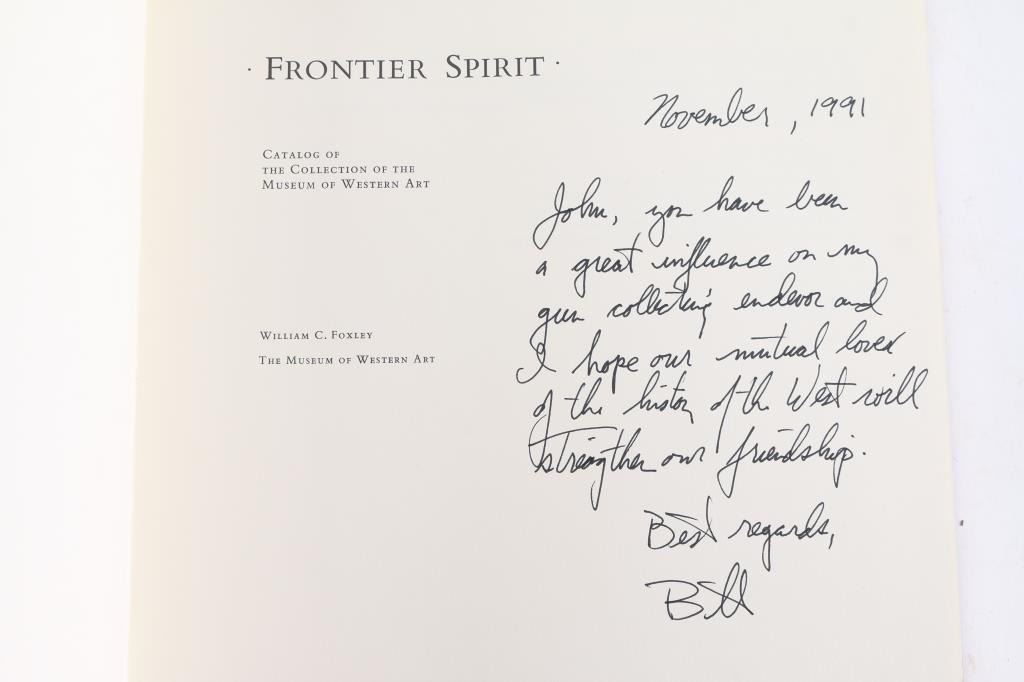 · FRONTIER SPIRIT ·
CATALOG OF
THE COLLECTION OF THE
MUSEUM OF WESTERN ART
WILLIAM C. FOXLEY
THE MUSEUM OF WESTERN ART
November, 1991
John, you have been
a great influence on my
gun collecting endevor and
I hope our mutual love
of the history of the West will
strengthen our friendship.
Best regards,
Bill